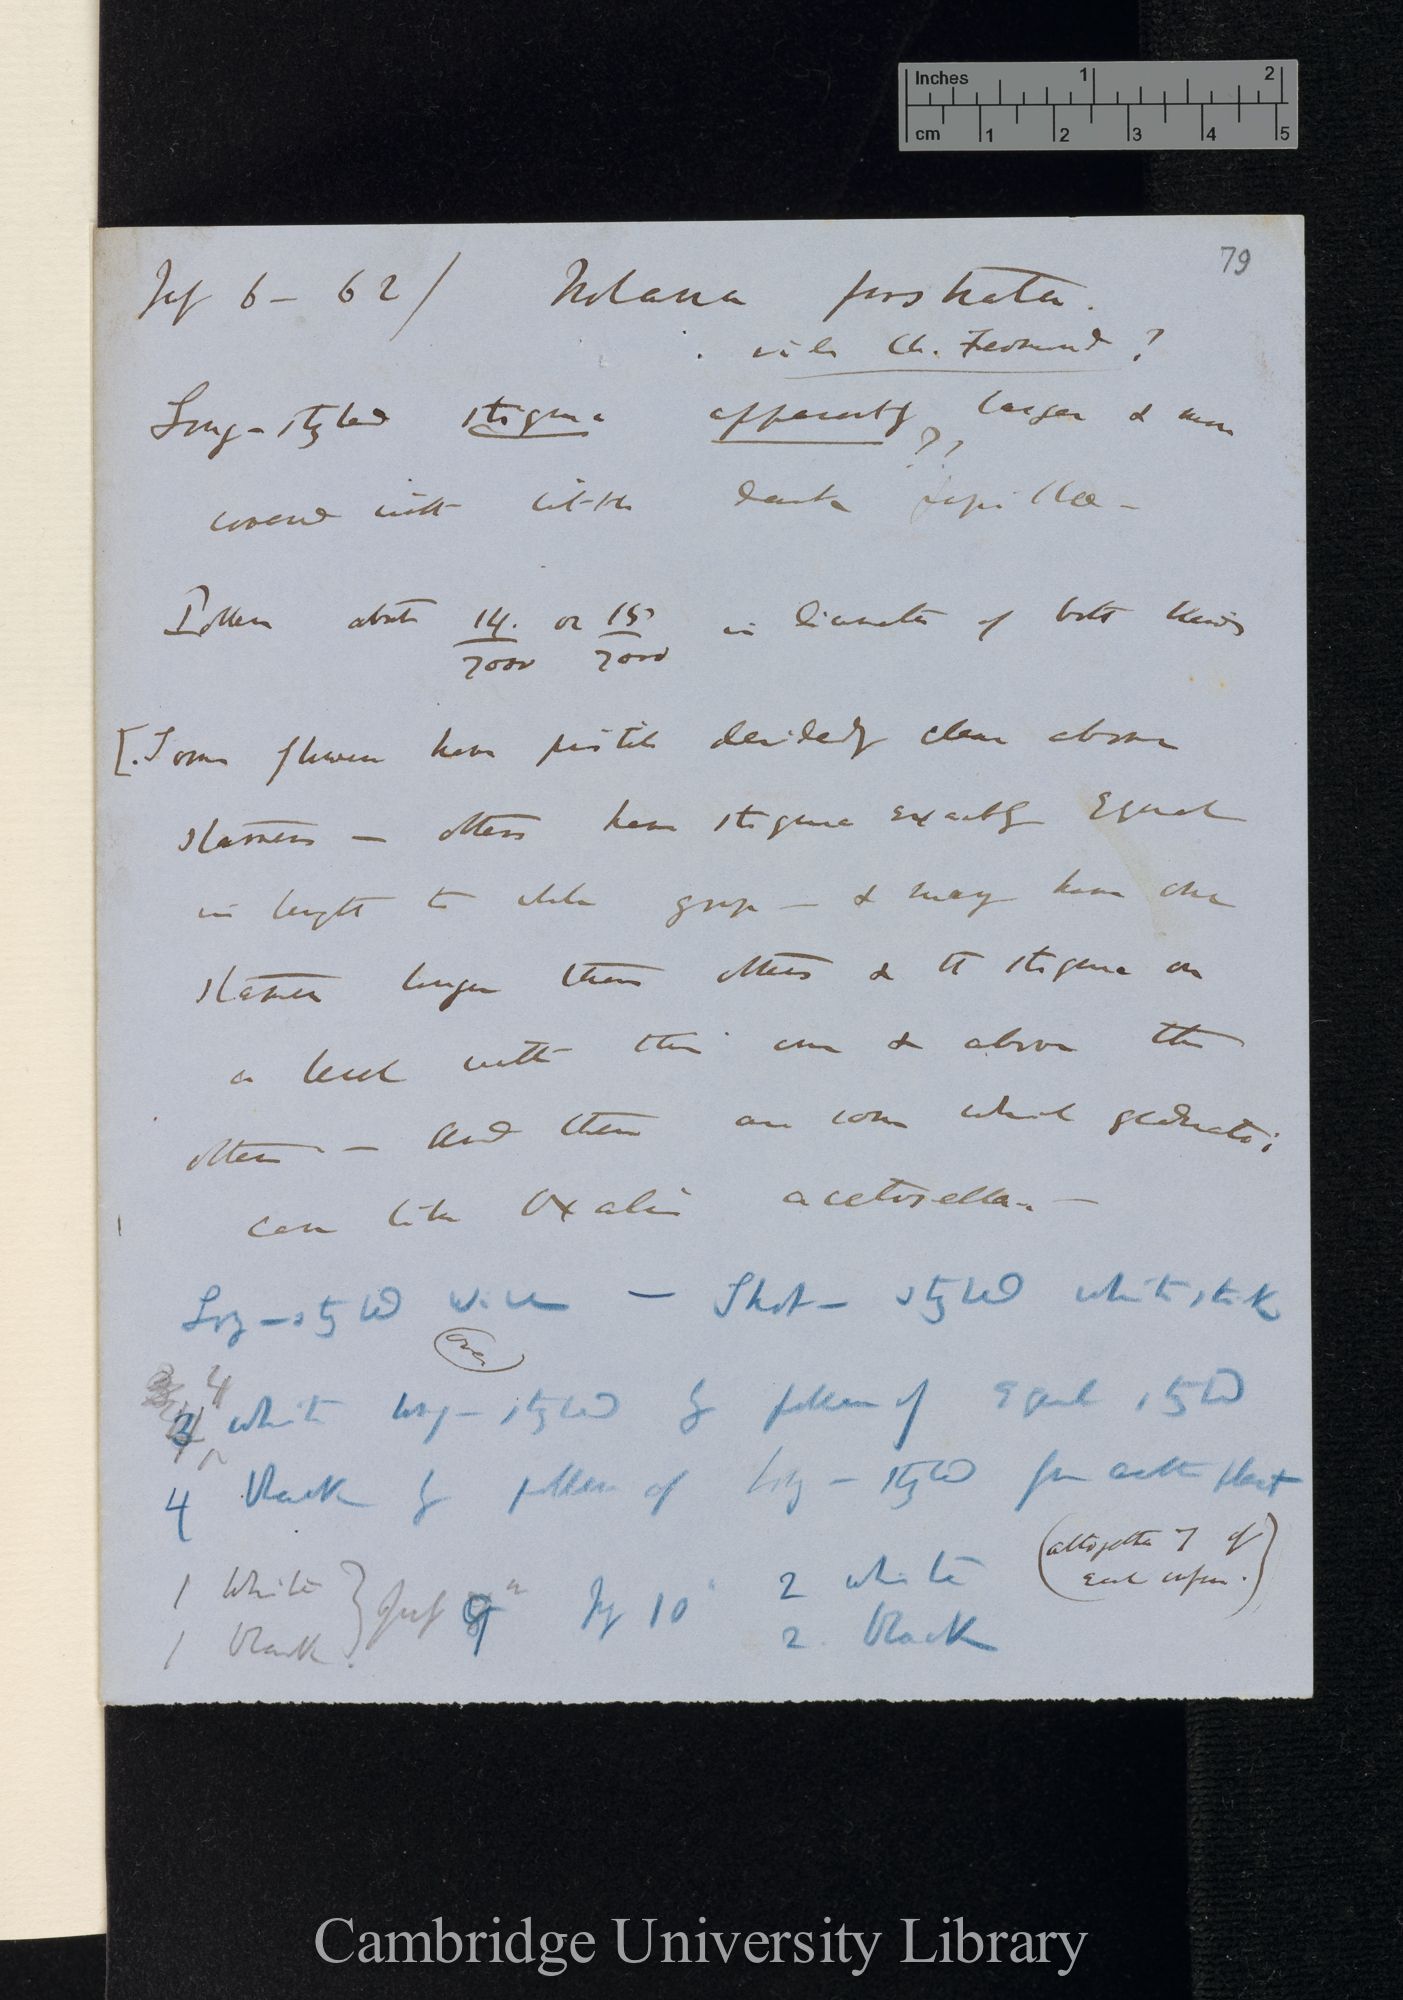 Inches 1 2
cm 1 2 3 4 5
79
July 6 – 62/ Nolana prostrata.
Long-styled stigma apparently larger & more
??
covered with little dark papillae –
Pollen about 14/7000 or 15/7000 in diameter of both kinds
[Some flowers have pistils decidedly clear above
stamens – others have stigma exactly equal
in length to whole group – & many have one
stamen longer than others & the stigma on
a level with this one & above the
others – And there are some which graduate;
case like Oxalis acetosella. –
Long-styled – Short-styled white stick
(over)
4
3 white long-styled by pollen of equal styled
4 black by pollen of long-styled from other plant
(altogether 7 of
each)
1 White } July 9 July 10 2 white
1 black 2 black
Cambridge University Library